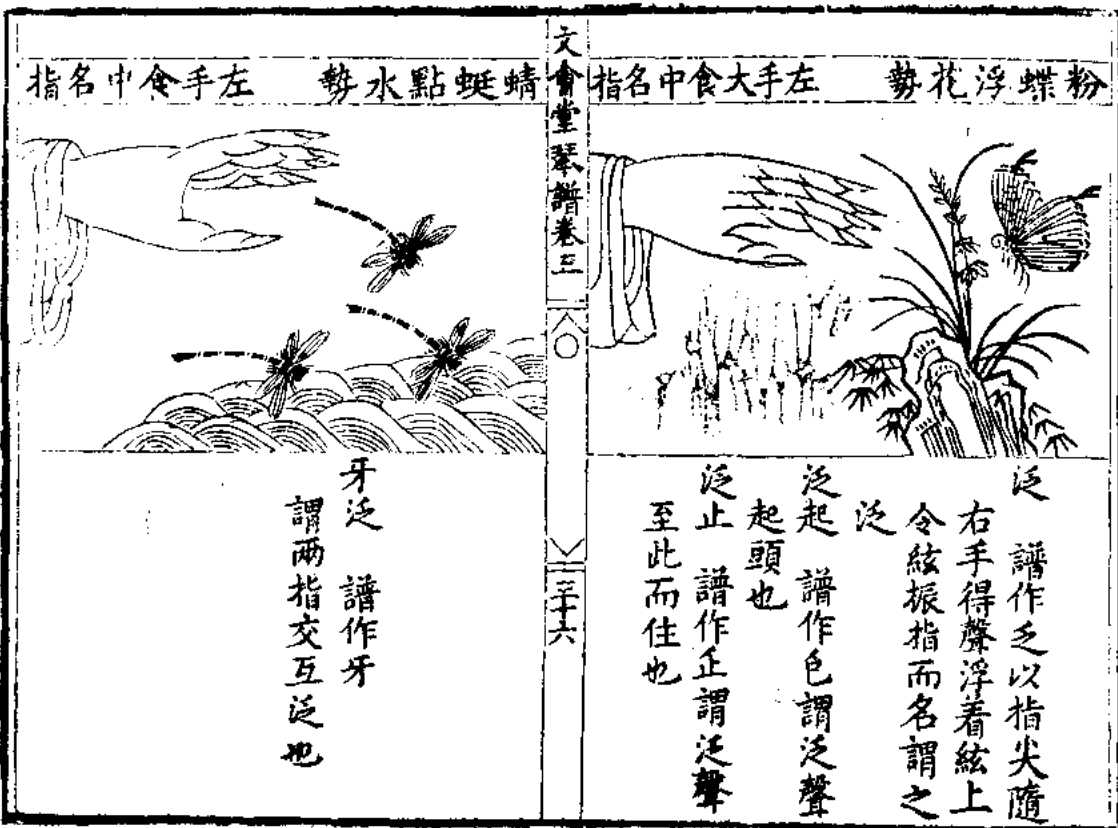 粉蝶浮花勢
左手大食中名指
泛 譜作乏以指尖隨
右手得聲浮着絃上
令絃振指而名謂之
泛
泛起 譜作色謂泛聲
起頭也
泛止 譜作正謂泛聲
至此而住也
文會堂琴譜卷三
三十六
蜻蜓點水勢
左手食中名指
牙泛 譜作牙
謂兩指交互泛也